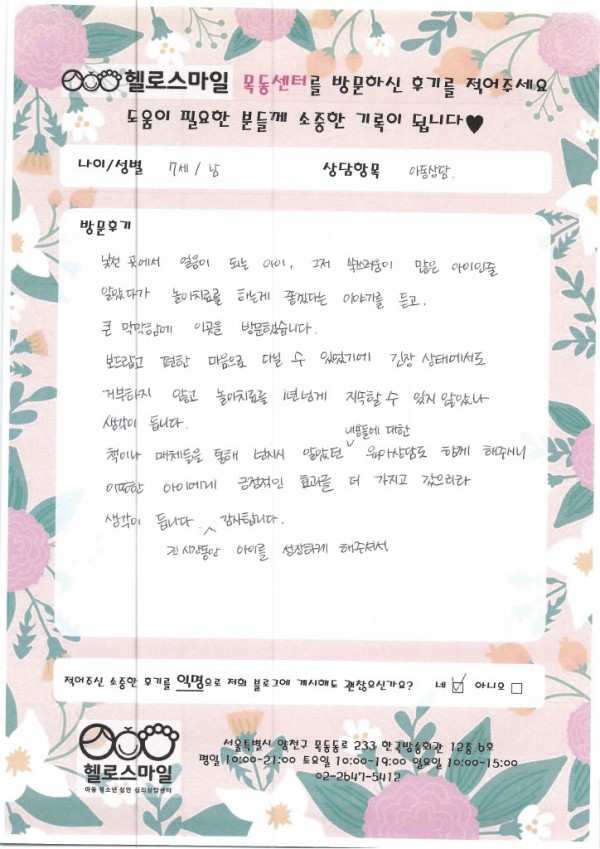 헬로스마일 목동센터를 방문하신 후기를 적어주세요
도움이 필요한 분들께 소중한 기록이 됩니다♥
나이/성별 7세 / 남 상담항목 아동상담.
방문후기
낯선 곳에서 얼음이 되는 아이, 그저 부끄러움이 많은 아이인줄
알았다가 놀이치료를 하는게 좋겠다는 이야기를 듣고.
큰 막막함에 이곳을 방문했습니다.
보드랍고 편한 마음으로 다닐 수 있었기에 긴장 상태에서도
거부하지 않고 놀이치료를 1년넘게 지속할 수 있지 않았나
생각이 듭니다.
책이나 매체들을 통해 넌지시 알았던 내용들에 대한 육아상담도 함께 해주시니
이또한 아이에게 긍정적인 효과를 더 가지고 갔으리라
생각이 듭니다. 긴 시간동안 아이를 성장하게 해주셔서 감사합니다.
적어주신 소중한 후기를 익명으로 저희 블로그에 게시해도 괜찮으신가요? 네 ☑ 아니오 □
헬로스마일
아동 청소년 성인 심리상담센터
서울특별시 양천구 목동동로 233 한국방송회관 12층 6호
평일 10:00-21:00 토요일 10:00-19:00 일요일 10:00-15:00
02-2647-5412